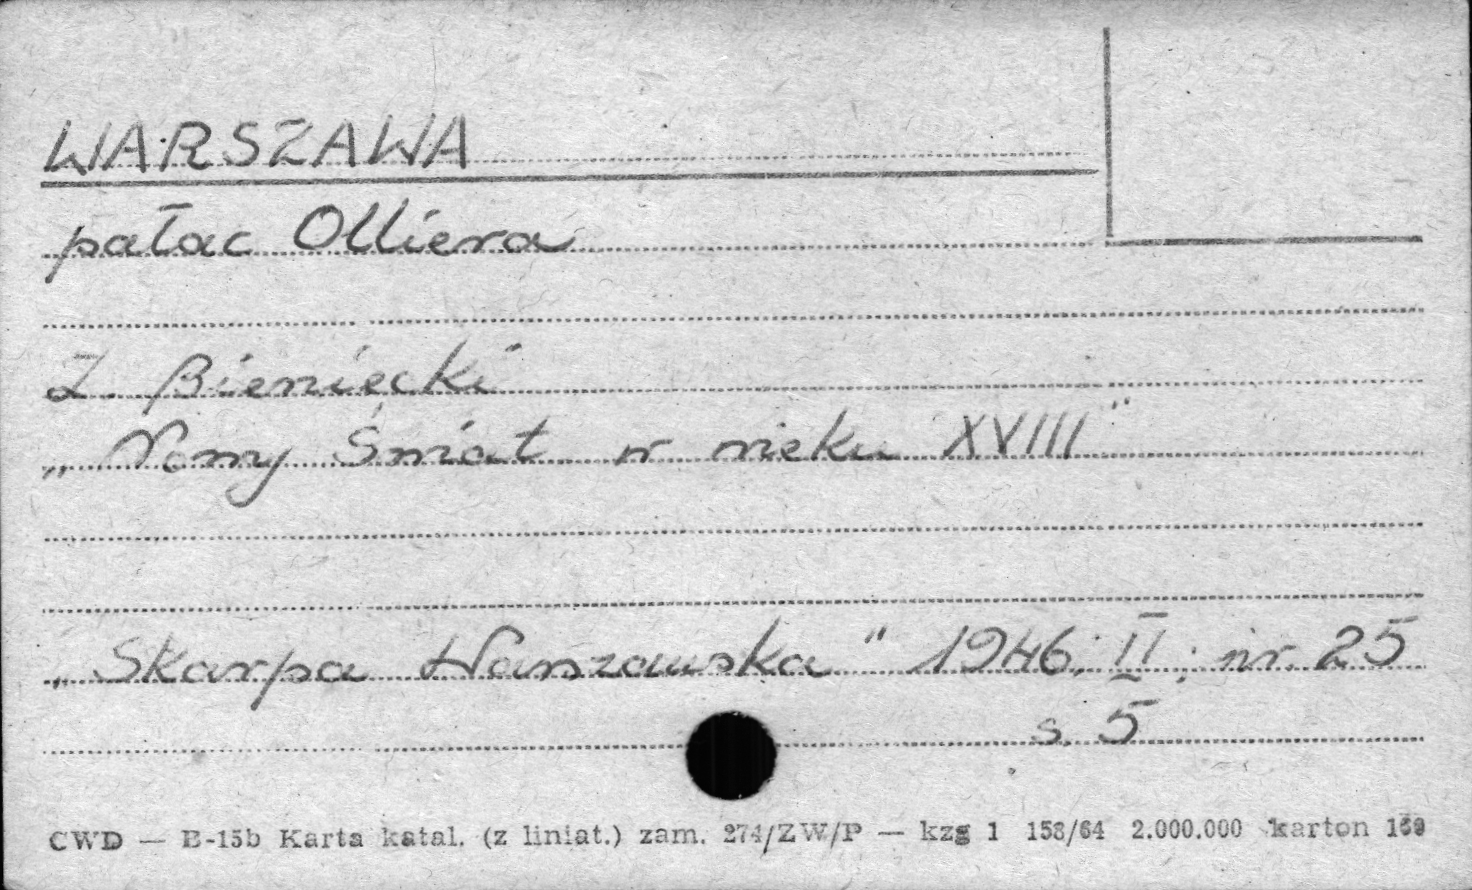 WARSZAWA
pałac Olliera
Z. Bieniecki
„Nowy Świat w wieku XVIII"
„Skarpa Warszawska" 1946, II; nr. 25
s. 5
CWD — B-15b Karta katal. (z liniat.) zam. 274/ZW/P — kzg 1 158/64 2.000.000 karton